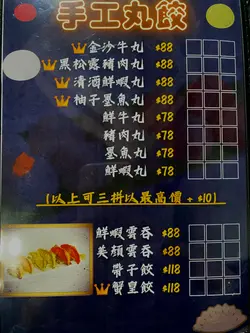 手工丸餃
金沙牛丸 $88
黑松露豬肉丸 $88
清酒鮮蝦丸 $88
柚子墨魚丸 $88
鮮牛丸 $78
豬肉丸 $78
墨魚丸 $78
鮮蝦丸 $78
(以上可三拼以最高價 + $10)
鮮蝦雲吞 $88
英顏雲吞 $88
帶子餃 $118
蟹皇餃 $118